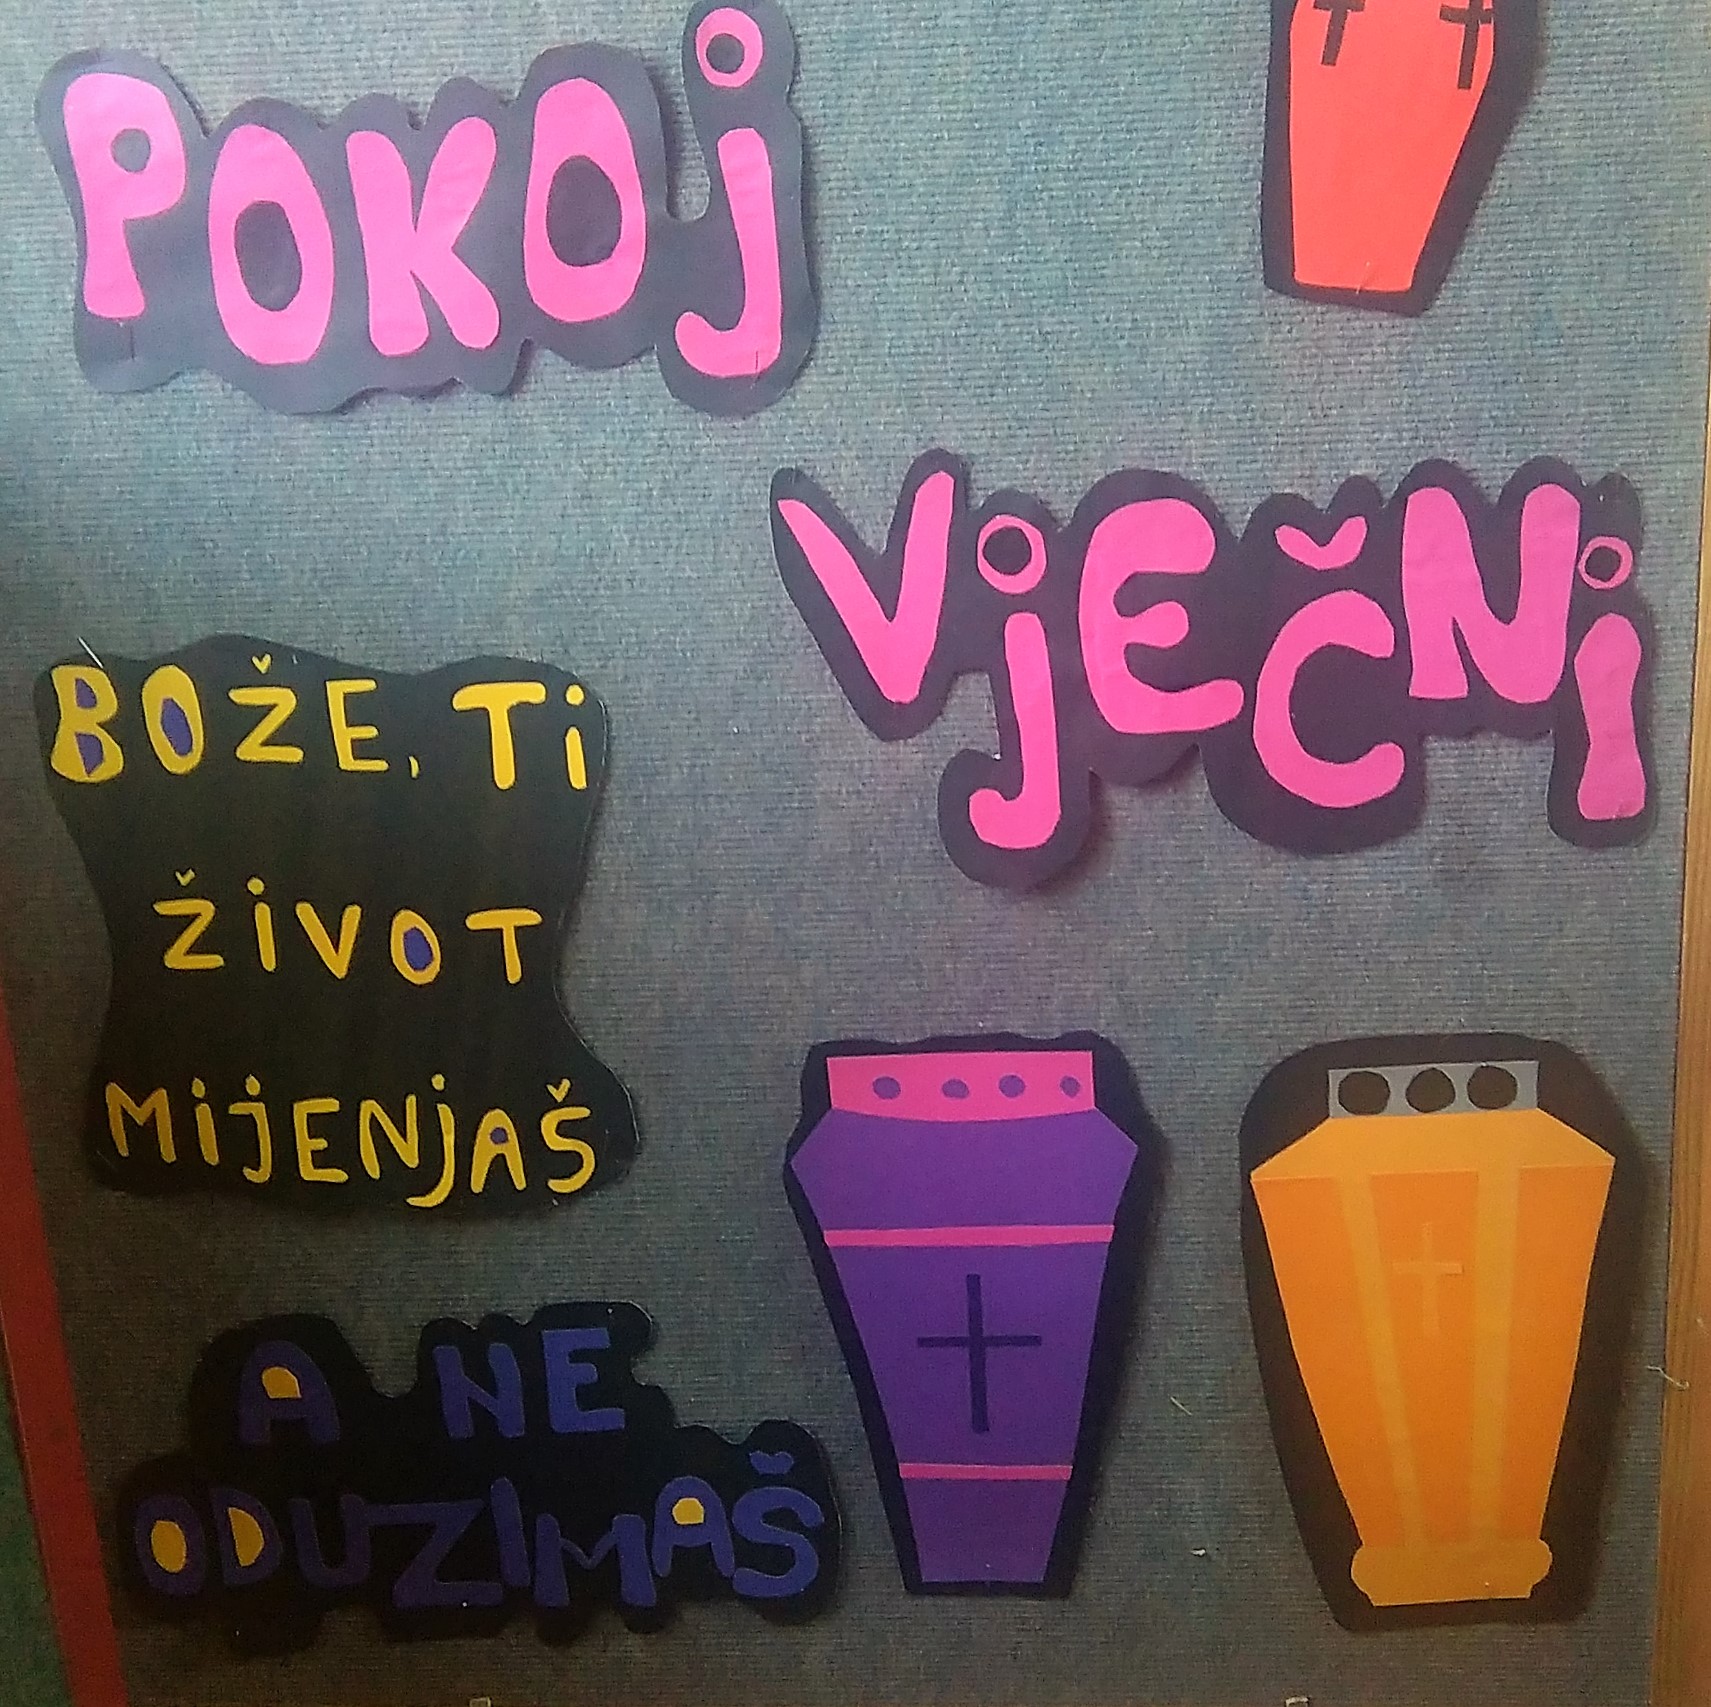 POKOj
VjEČNi
BOŽE, Ti
ŽiVOT
MijENjAŠ
A NE
ODUZIMAŠ